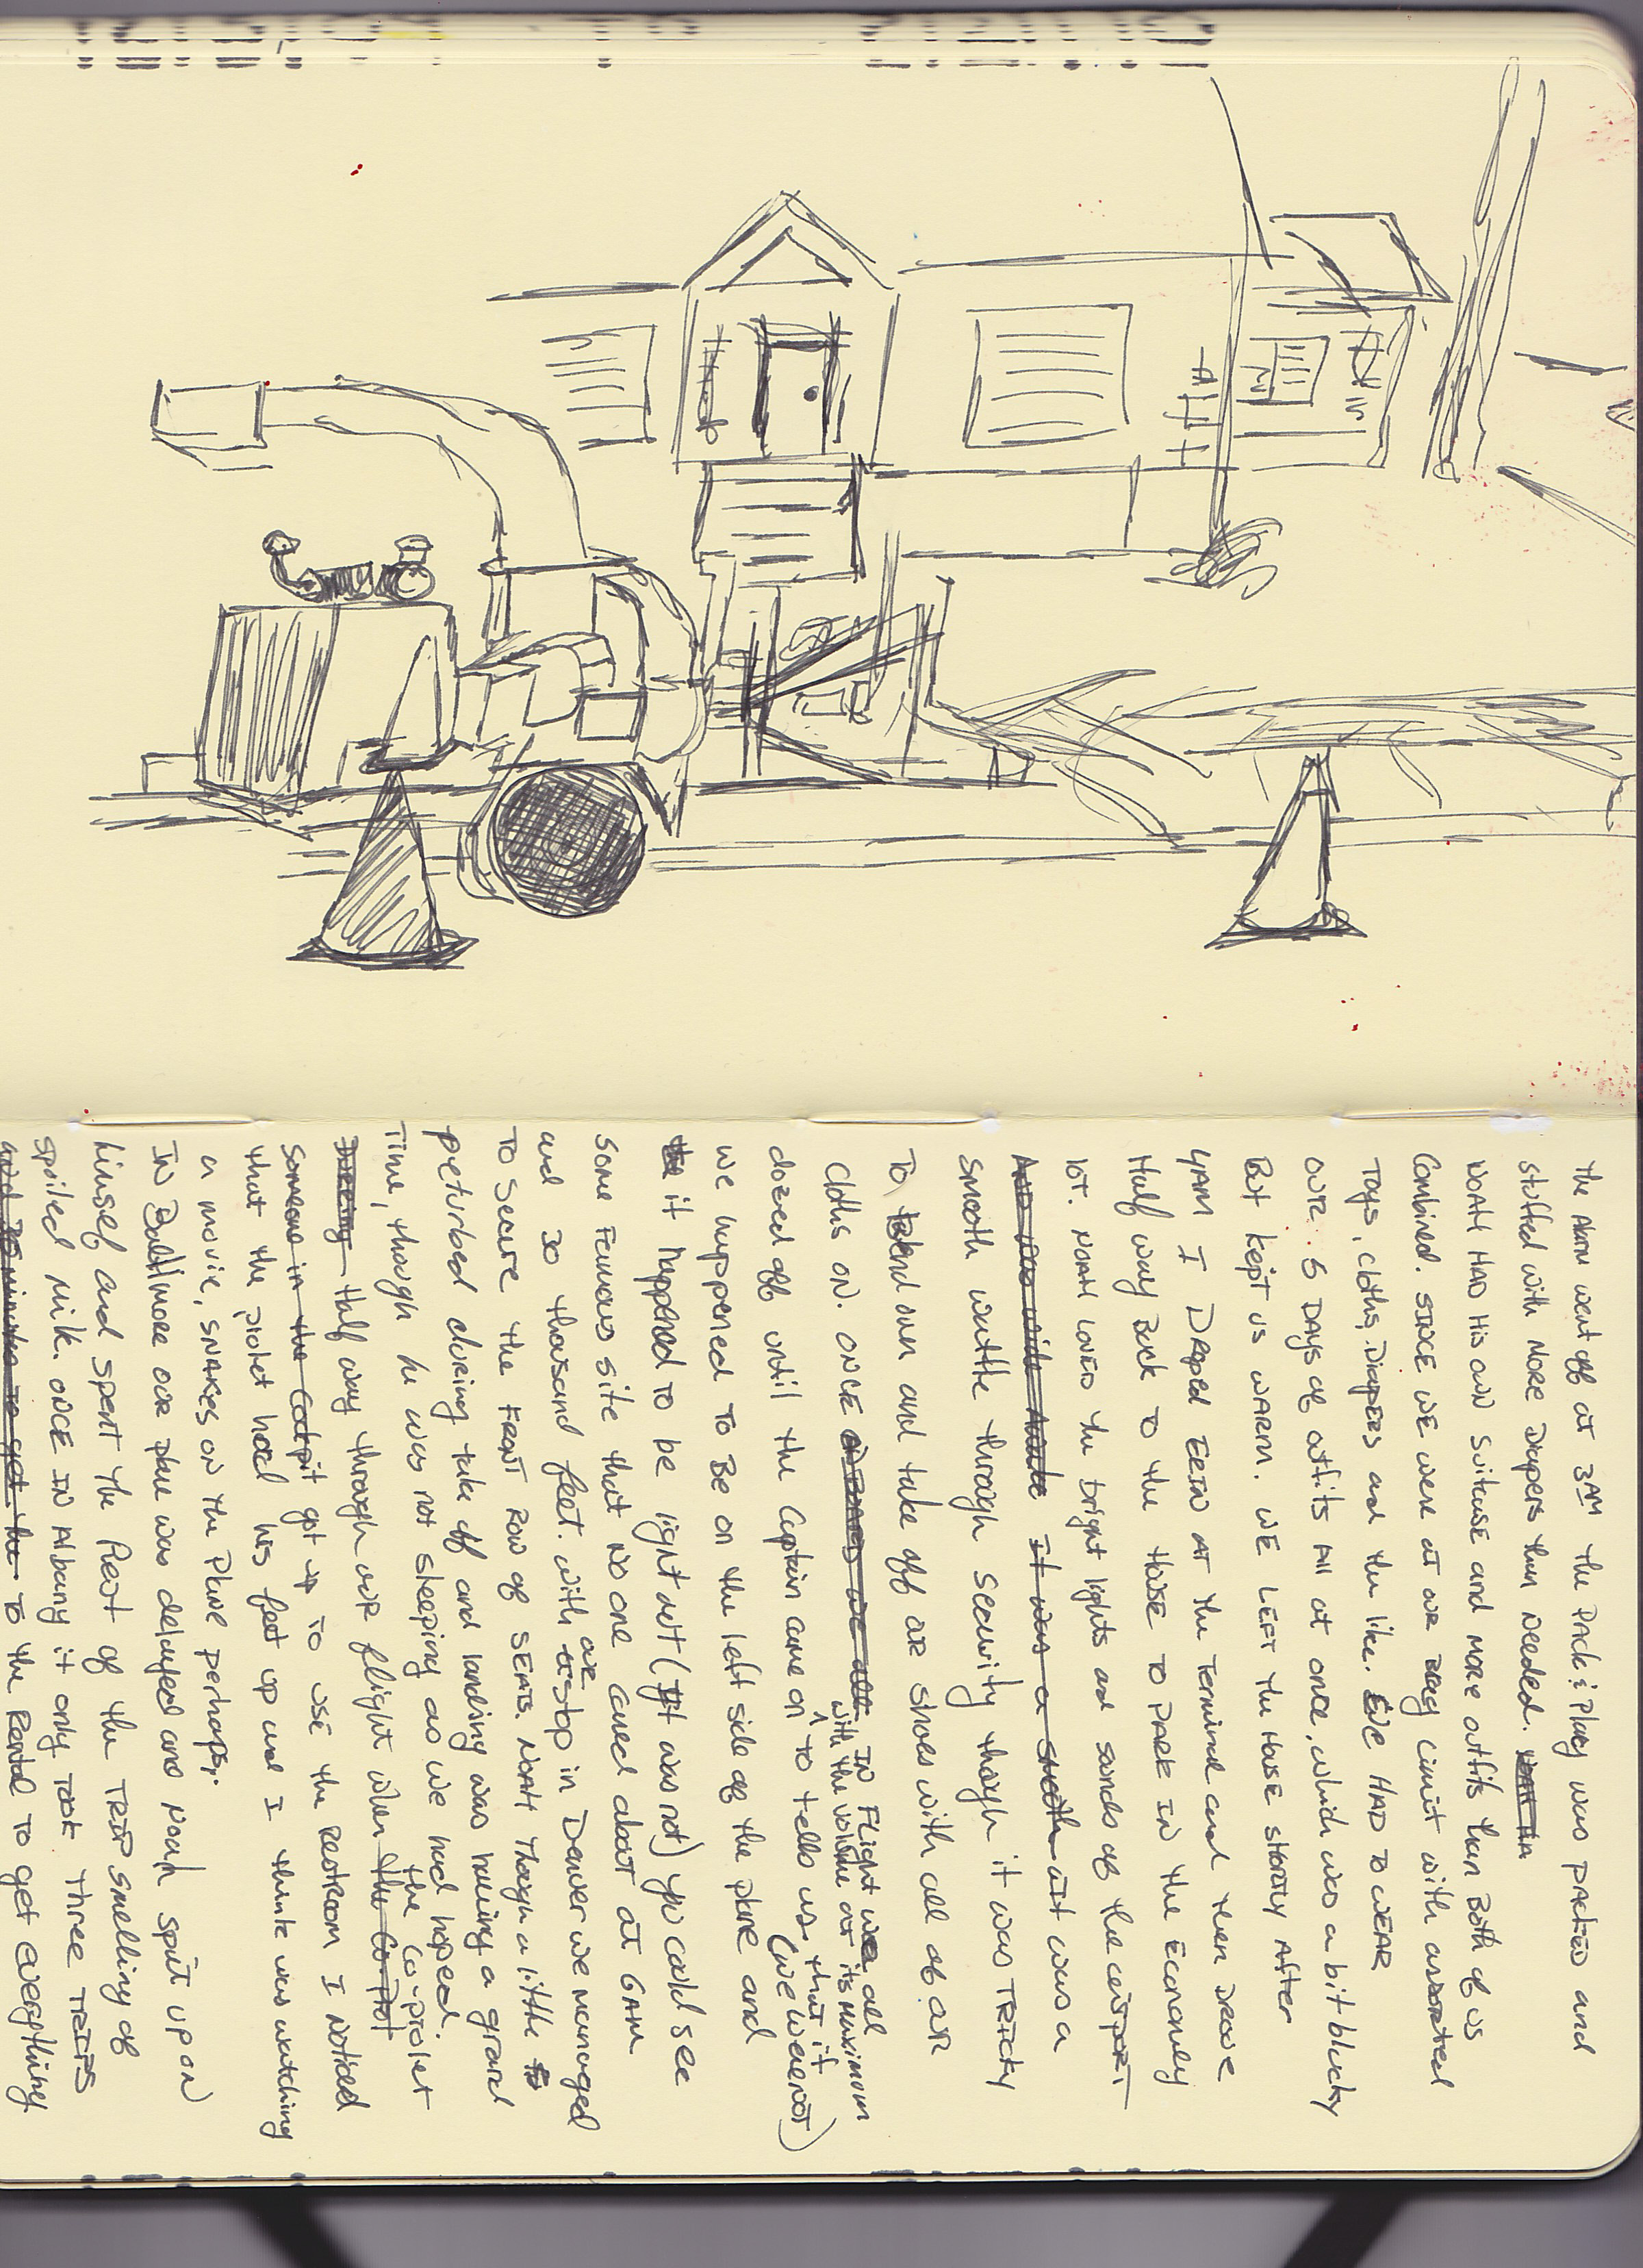 the Alarm went off at 3AM the Pack & Play was packed and
stuffed with more Diapers than needed.
NOAH HAD His own Suitcase and more outfits than Both of us
Combined. SINCE WE were at our bag limit with assorted
Toys, cloths, Diapers and the like. Eve HAD TO WEAR
OUR 5 DAYS of outfits All at once, which was a bit bulky
But kept us warm. WE LEFT the House shortly After
4AM I DROPED EEIN AT the Terminal and then DROVE
Half way Back TO the HOUSE TO PARK IN the Economy
lot. NOAH LOVED the bright lights and sounds of the airport
And was wide Awake It was a smooth it was a
smooth wattle through security though it was TRICKY
To bend down and take off our shoes with all of our
Cloths on. ONCE on BOARD we all IN Flight we all
with the volume at its Maximum
dozed off until the Captain came on to tells us that if
(we were not)
we happened TO Be on the left side of the plane and
it happened to be light out (it was not) you could see
some famous site that no one cared about at 6AM
and 30 thousand feet. with our stop in Denver we managed
TO Secure the FRONT Row of SEATS. NOAH though a little
peturbed during take off and landing was having a grand
Time, though he was not sleeping as we had hoped.
During Half way through our flight when the Co-Pilot the co-pilot
Someone in the Cockpit got up TO use the RESTROOM I Noticed
that the pilot had his feet up and I think was watching
a movie, SNAKES on the Plane perhaps.
IN Baltimore our plane was delayed and Noah spit up on
himself and spent the Rest of the TRIP smelling of
spoiled milk. ONCE IN Albany it only TOOK three TRIPS
and 45 minutes to get the TO the Rental TO get everything